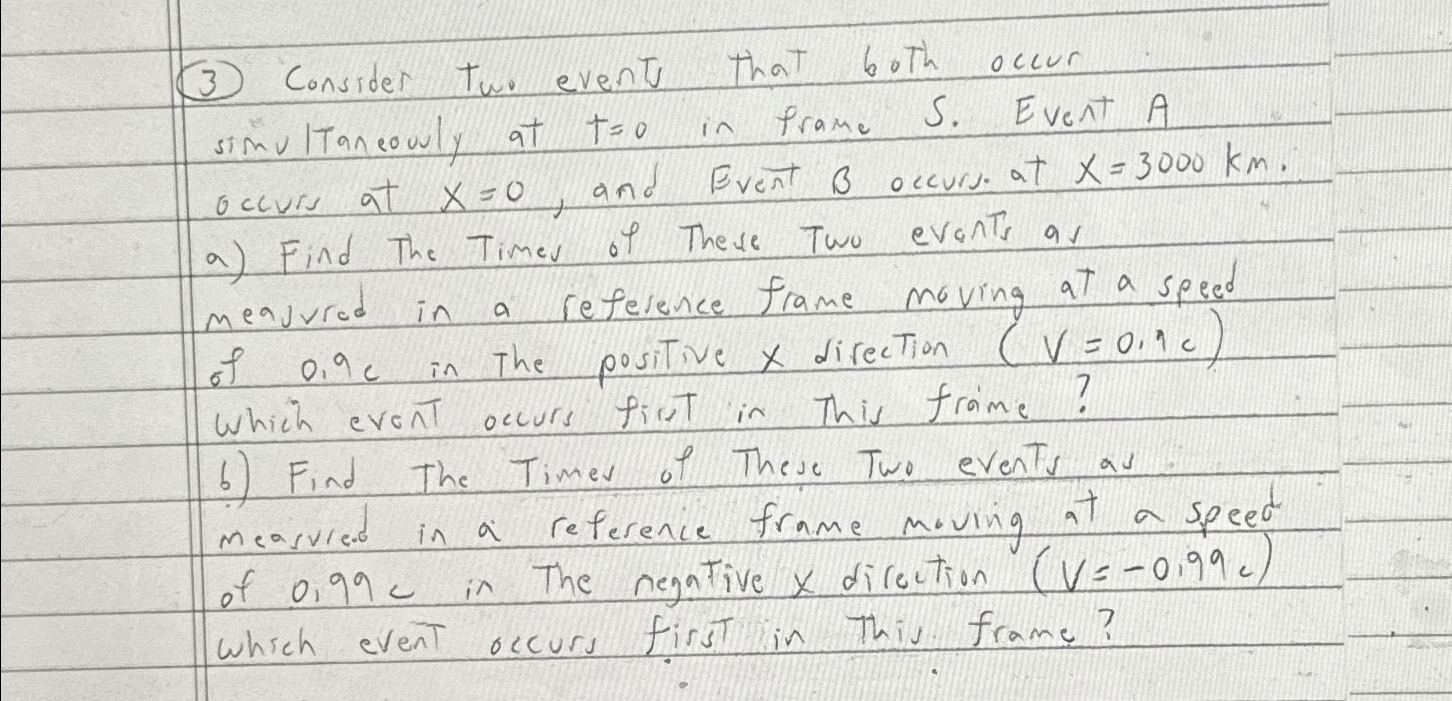 ③ Consider two events that both occur
simultaneously at t=0 in frame S. Event A
occurs at x=0, and Event B occurs at x=3000 km.
a) Find the times of these two events as
measured in a reference frame moving at a speed
of 0.9c in the positive x direction (V=0.9c)
which event occurs first in this frame?
b) Find the times of these two events as
measured in a reference frame moving at a speed
of 0.99c in the negative x direction (V=-0.99c)
which event occurs first in this frame?